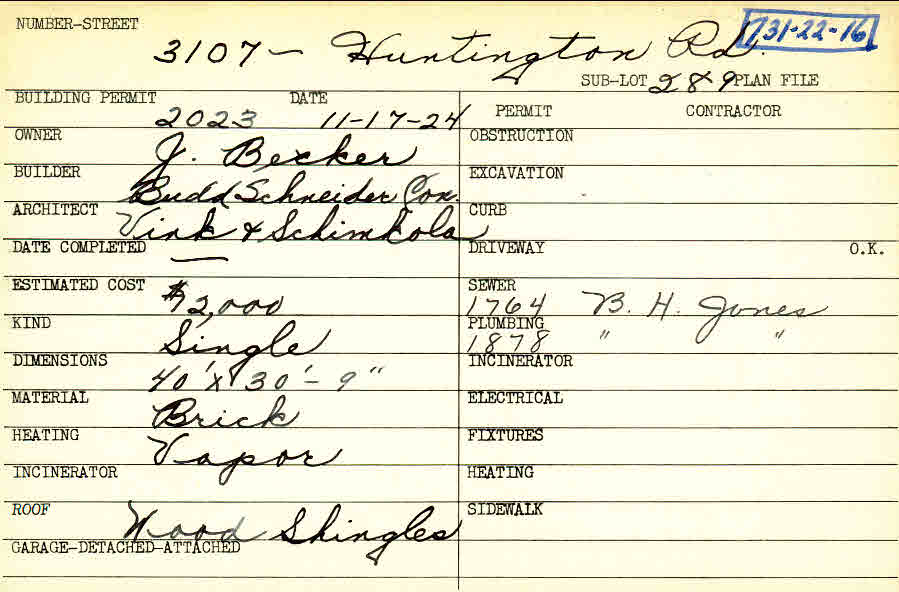 NUMBER-STREET
3107 - Huntington Rd. 731-22-16
SUB-LOT 289 PLAN FILE
BUILDING PERMIT DATE PERMIT CONTRACTOR
2023 11-17-24
OWNER J. Becker OBSTRUCTION
BUILDER Budd Schneider Con. EXCAVATION
ARCHITECT Vink & Schimkola CURB
DATE COMPLETED — DRIVEWAY O.K.
ESTIMATED COST $12,000 SEWER
1764 B. H. Jones
KIND Single PLUMBING
1878 " "
DIMENSIONS 40' X 30'-9" INCINERATOR
MATERIAL Brick ELECTRICAL
HEATING Vapor FIXTURES
INCINERATOR HEATING
ROOF Wood Shingles SIDEWALK
GARAGE-DETACHED-ATTACHED